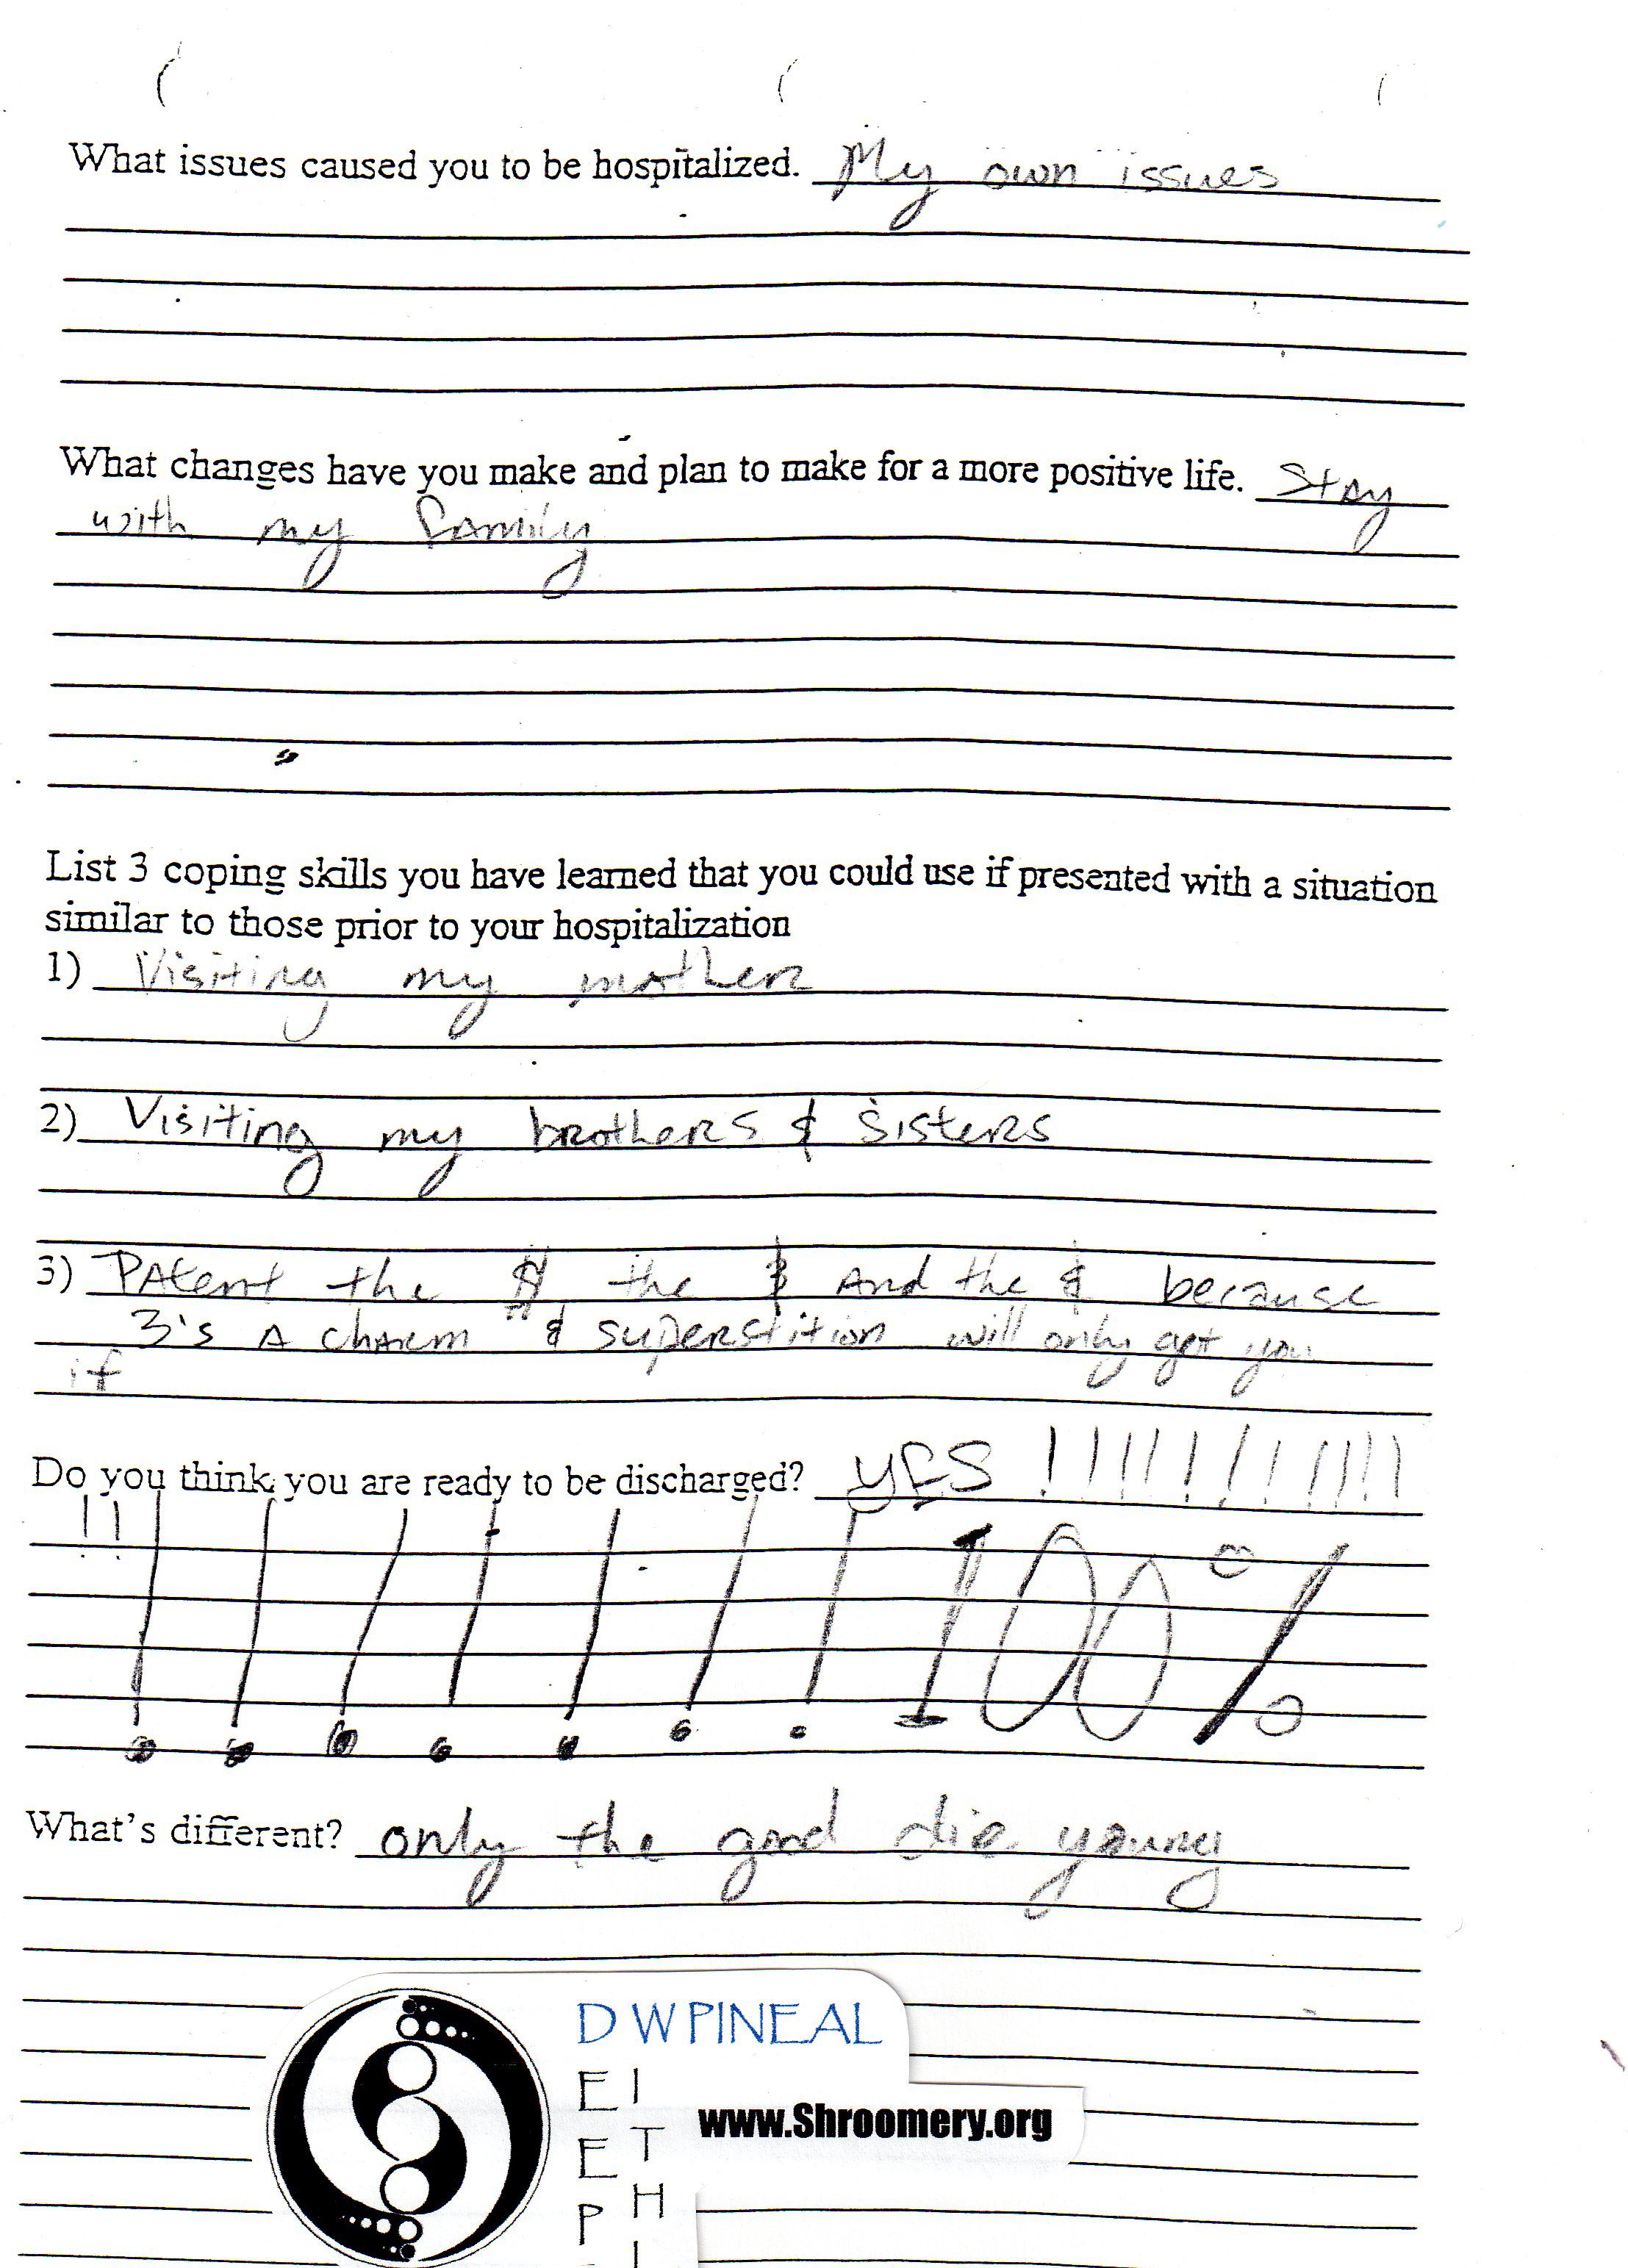 What issues caused you to be hospitalized. My own issues
What changes have you make and plan to make for a more positive life. Stay
with my family
List 3 coping skills you have learned that you could use if presented with a situation
similar to those prior to your hospitalization
1) Visiting my mother
2) Visiting my brothers & sisters
3) Patent the the And the & because
3's A charm & superstition will only get you
if
Do you think you are ready to be discharged? YES !!!!!!!!!!!!!
!! !!!!!!! 100%
What's different? only the good die young
D W PINEAL
E I
www.Shroomery.org
E T
P H